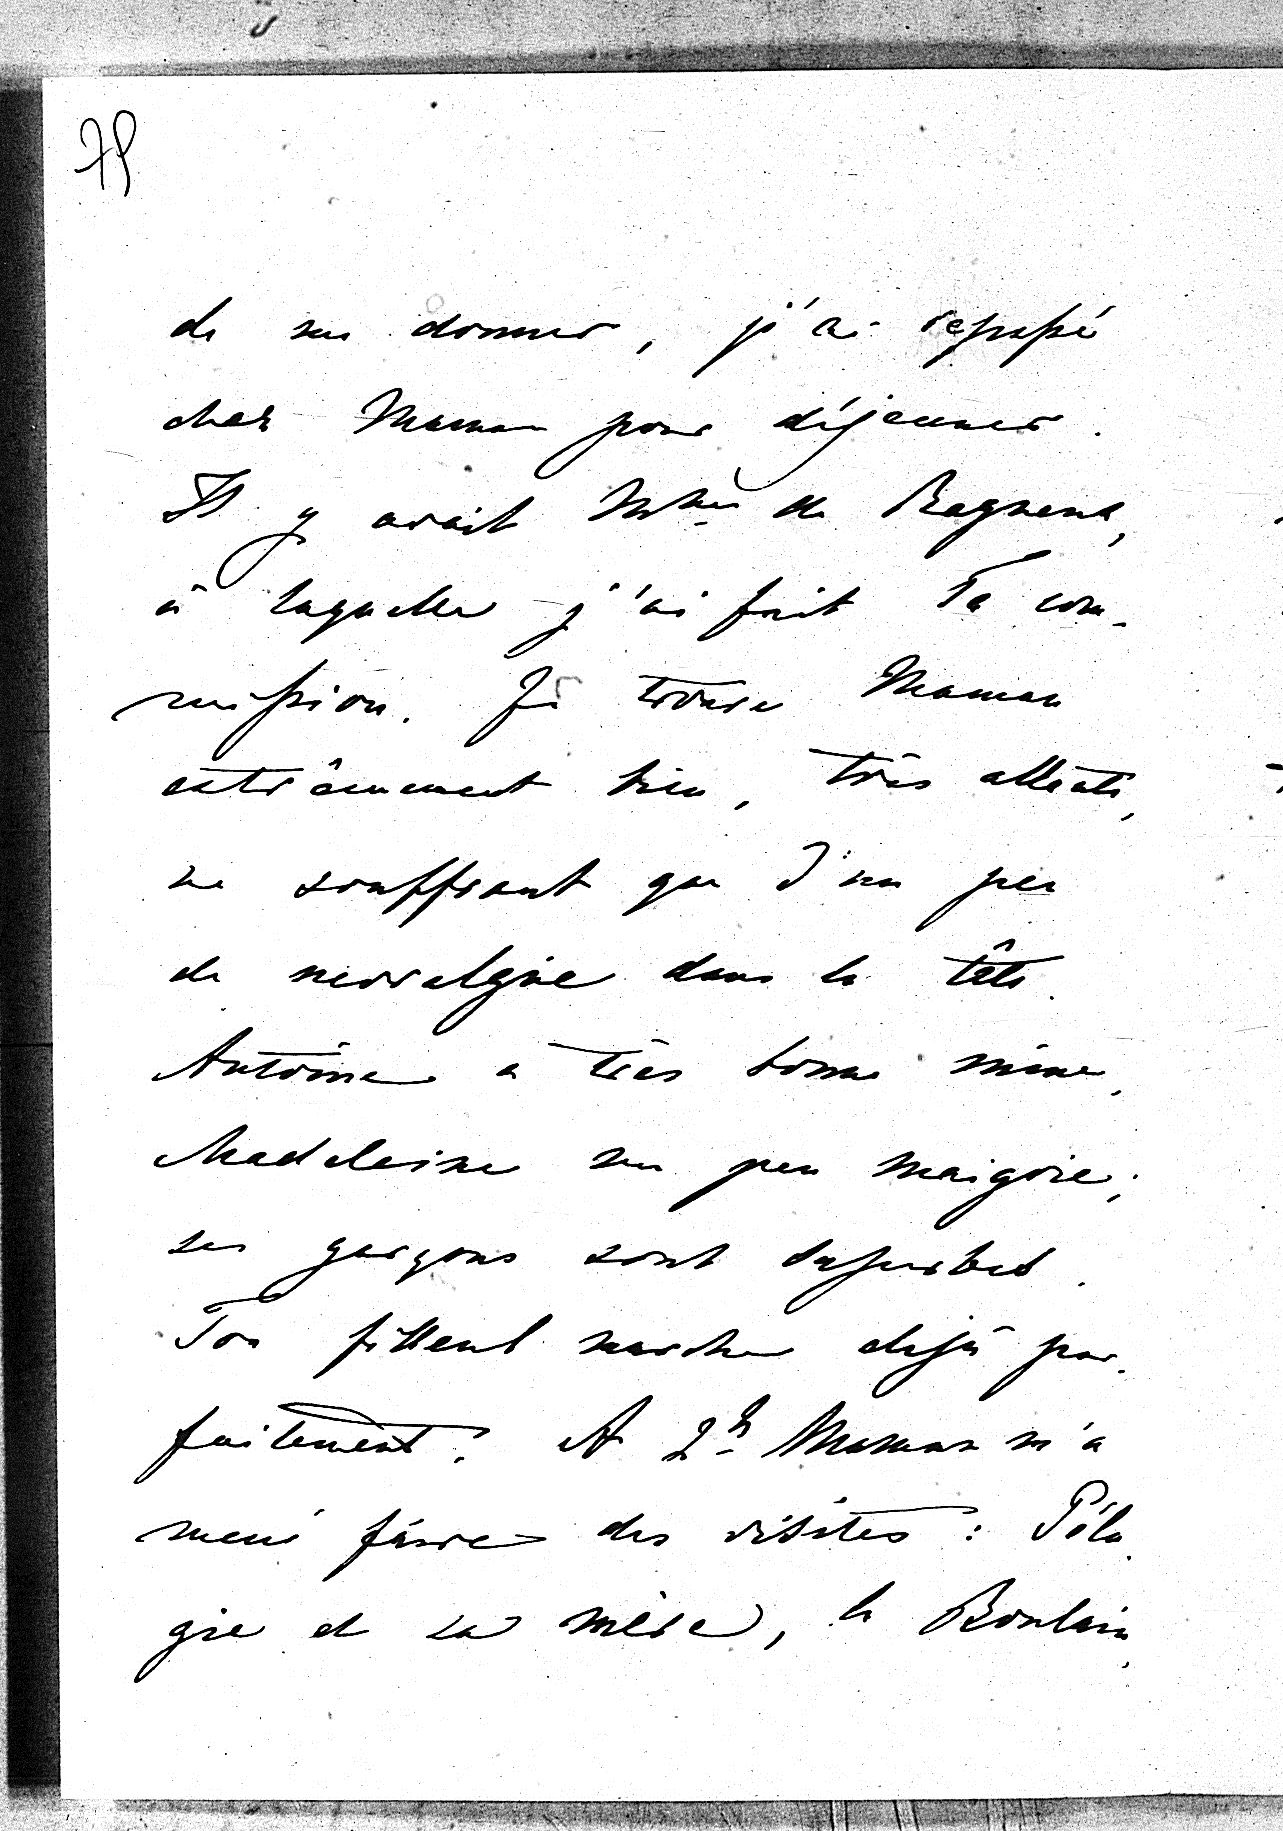 79
de me donner, j'ai repassé
chez Maman pour déjeuner.
Il y avait Mme de Bagneux,
à laquelle j'ai fait Ta com-
mission. Je trouve Maman
extrêmement bien, très allante,
ne souffrant que d'un peu
de nevralgie dans la tête.
Antoine a très bonne mine,
Madeleine un peu maigrie;
ses garçons sont superbes.
Ton filleul marche dejà par-
faitement. A 2h Maman m'a
mené faire des visites : Péla-
gie et sa mère, la Boulain-